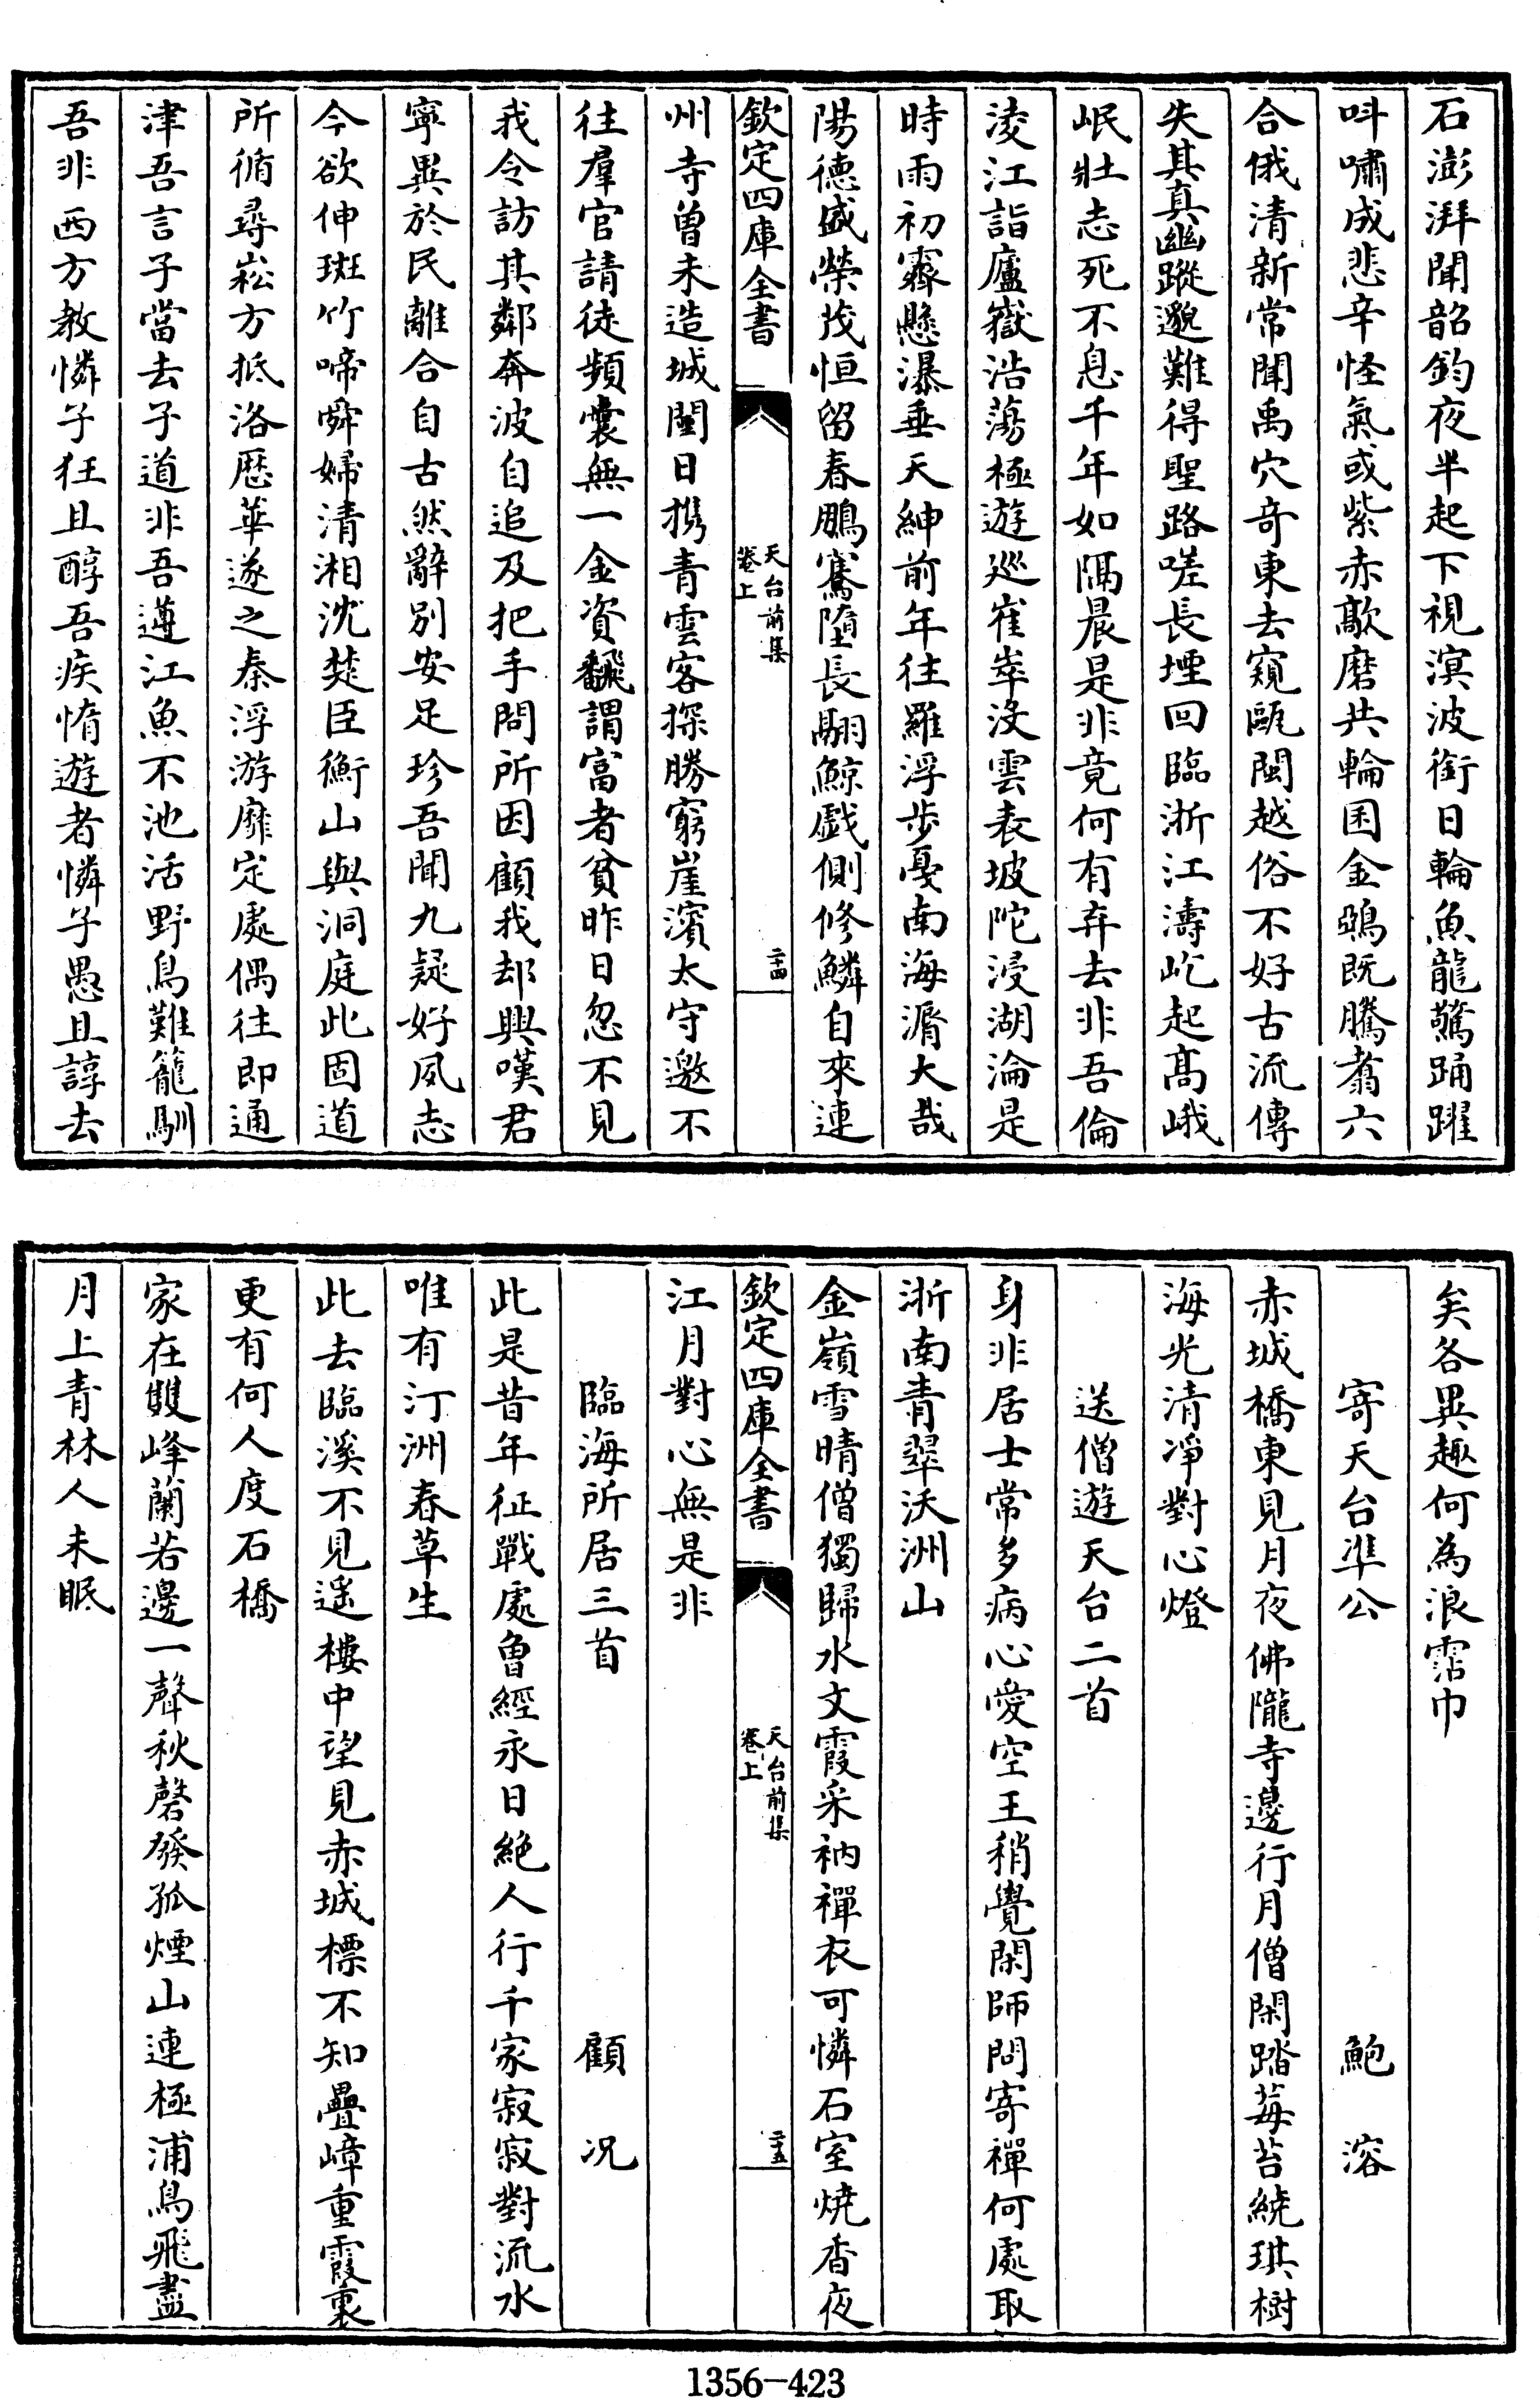 石澎湃聞韶鈞夜半起下視溟波銜日輪魚龍驚踊躍
呌嘯成悲辛怪氣或紫赤歊磨共輪囷金鵶旣騰翥六
合俄清新常聞禹穴竒東去窺甌閩越俗不好古流傳
失其真幽蹤邈難得聖路嗟長堙回臨浙江濤屹起髙峨
岷壯志死不息千年如隔晨是非竟何有弃去非吾倫
淩江詣廬嶽浩蕩極遊廵崔崒沒雲表坡陀浸湖淪是
時雨初霽懸瀑垂天紳前年往羅浮步戞南海漘大哉
陽德盛榮茂恒留春鵬騫墮長翮鯨戲側修鱗自來連
欽定四庫全書
天台前集
卷上
二十四
州寺曽未造城闉日攜青雲客探勝窮崖濱太守邀不
往羣官請徒頻囊無一金資飜謂富者貧昨日忽不見
我令訪其鄰奔波自追及把手問所因顧我却興嘆君
寧異於民離合自古然辭别安足珍吾聞九疑好夙志
今欲伸斑竹啼舜婦清湘沈楚臣衡山與洞庭此固道
所循尋崧方抵洛歴華遂之秦浮游靡定處偶往即通
津吾言子當去子道非吾遵江魚不池活野鳥難籠馴
吾非西方教憐子狂且醇吾疾惰遊者憐子愚且諄去
矣各異趣何為浪霑巾
寄天台凖公
鮑溶
赤城橋東見月夜佛隴寺邊行月僧閑踏莓苔繞琪樹
海光清凈對心燈
送僧遊天台二首
身非居士常多病心愛空王稍覺閑師問寄禪何處取
浙南青翠沃洲山
金嶺雪晴僧獨歸水文霞采衲禪衣可憐石室焼香夜
欽定四庫全書
天台前集
卷上
二十五
江月對心無是非
臨海所居三首
顧况
此是昔年征戰處曽經永日絶人行千家寂寂對流水
唯有汀洲春草生
此去臨溪不見遥樓中望見赤城標不知疊嶂重霞裏
更有何人度石橋
家在雙峰蘭若邊一聲秋磬發孤煙山連極浦鳥飛盡
月上青林人未眠
1356-423